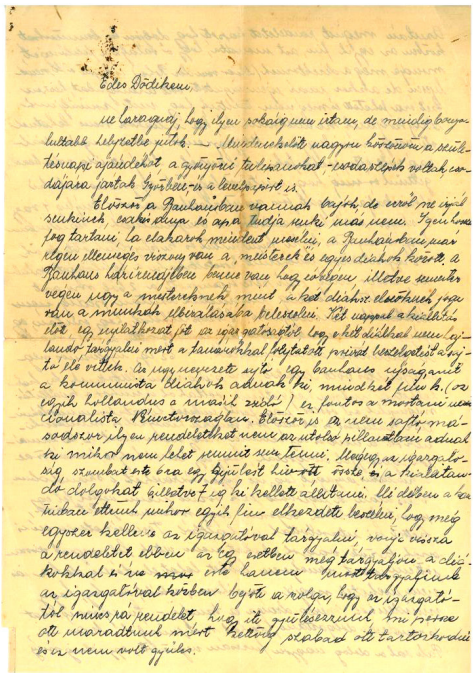 Édes Dödikém,
ne haragudj, hogy ilyen sokáig nem írtam, de mindig bonyo-
lultabb helyzetbe jutok. – Mindenekelőtt nagyon köszönöm a szüle-
tésnapi ajándékot a gyönyörű tulipánokat – csodaszépek voltak, cso-
dájára jártak és a levelezőért is.
Először a Bauhausban vannak bajok, de erről ne írjál
senkinek, csakis anya és apa tudja senki más nem. Igen hosszú
fog tartani, ha el akarok mindent mesélni, a Bauhausban már
régen ellenséges viszony van a mesterek és egyes diákok között, a
Bauhaus benne van hogy évvégén illetve semester
végén úgy a mestereknek mint a két diáknak joga
van a munkák elbírálásába beleszólni. Két nappal a kiállítás
előtt egy nyilatkozat jött az igazgatóságtól, hogy e két diákkal nem haj-
landó tárgyalni mert a tanárokkal folytatott privát beszélgetést a saj-
tó elé vitték. Az úgynevezett sajtó egy bauhaus ujság amit
a kommunista diákok adnak ki mindkét fiú k. (az
egyik hollandus a másik zsidó) ez fontos a mostani nem-
zionalista Németországban. Először is ez nem sajtó má-
sodszor ilyen rendeleteket nem az utolsó pillanatban adnak
ki mikor nem lehet semmit sem tenni. Megegy az igazgató-
ság szombat este 6 óra egy gyűlést hívott össze és a kiállítan-
dó dolgokat illetve 7 ig ki kellett állítani. Mi ebben a
ültünk mikor egyik fiú elkezdett beszélni, hogy még
egyszer kellene az igazgatóval tárgyalni, vonja vissza
a rendeletet ebben az egy esetben még tárgyaljon a diá-
kokkal és ne este hanem most tárgyaljunk
az igazgatóval közben bejött a szolga, hogy az igazgató-
tól nincs rá rendelet hogy itt gyűlésezzünk, mi persze
ott maradtunk mert kettőig szabad ott tartózkodni
és ez nem volt gyűlés.